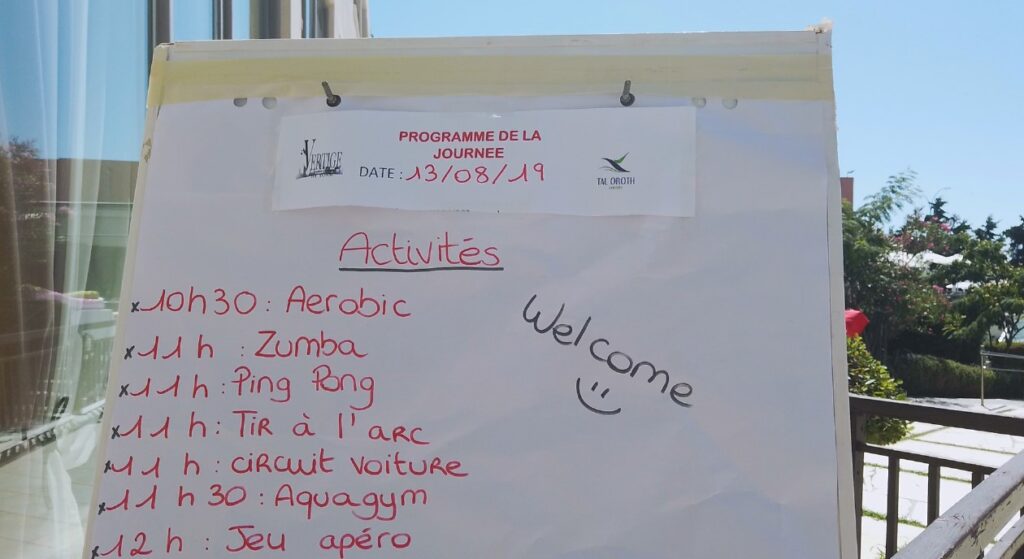 VERTIGE
PROGRAMME DE LA
JOURNEE
DATE : 13/08/19
TAL OROTH
Activités
x 10h30 : Aerobic
x 11h : Zumba
x 11h : Ping Pong
x 11h : Tir à l'arc
x 11h : circuit voiture
x 11h30 : Aquagym
x 12h : Jeu apéro
Welcome